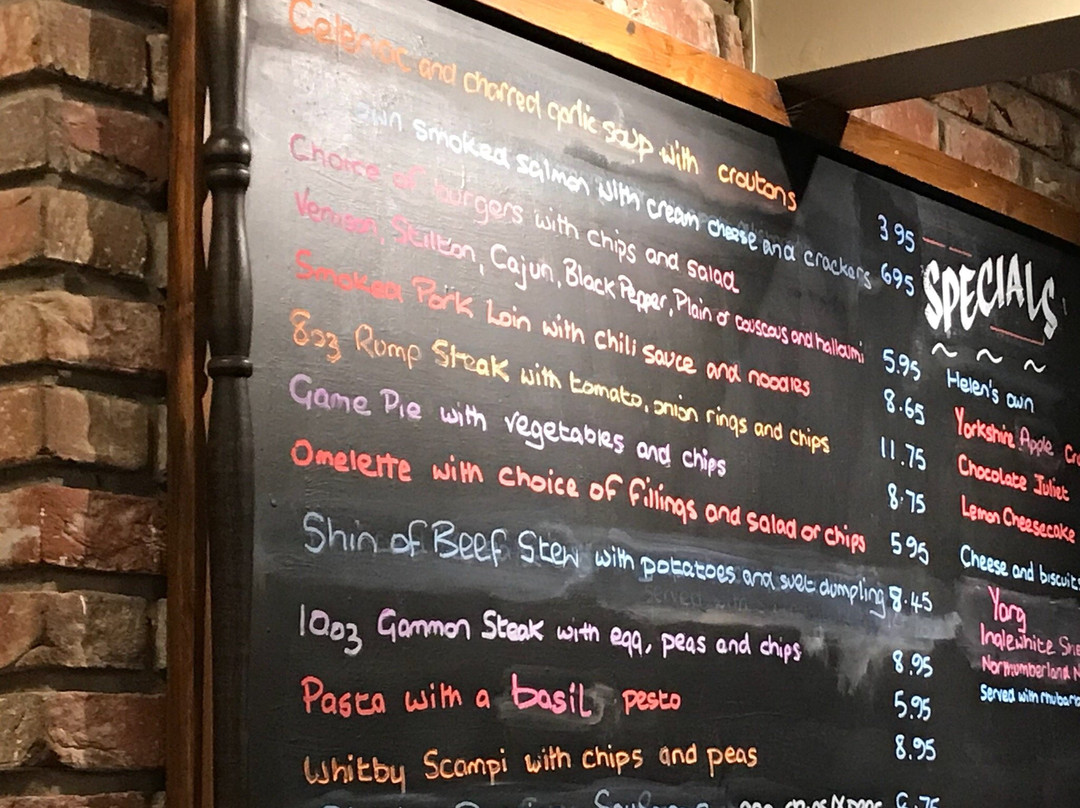 Celeriac and charred garlic soup with croutons 3 95
own smoked salmon with cream cheese and crackers 6 95
Choice of burgers with chips and salad
Venison, Stilton, Cajun, Black Pepper, Plain or couscous and halloumi 5.95
Smoked Pork Loin with chili sauce and noodles 8.65
8oz Rump Steak with tomato, onion rings and chips 11.75
Game Pie with vegetables and chips 8.75
Omelette with choice of fillings and salad or chips 5 95
Shin of Beef Stew with potatoes and suet dumpling 8.45
10oz Gammon Steak with egg, peas and chips 8.95
Pasta with a basil pesto 5.95
Whitby Scampi with chips and peas 8.95
6.75
SPECIALS
Helen's own
Yorkshire Apple
Chocolate Juliet
Lemon Cheesecake
Cheese and biscuits
Yorg
Inglewhite
Northumberland
Served with rhubarb